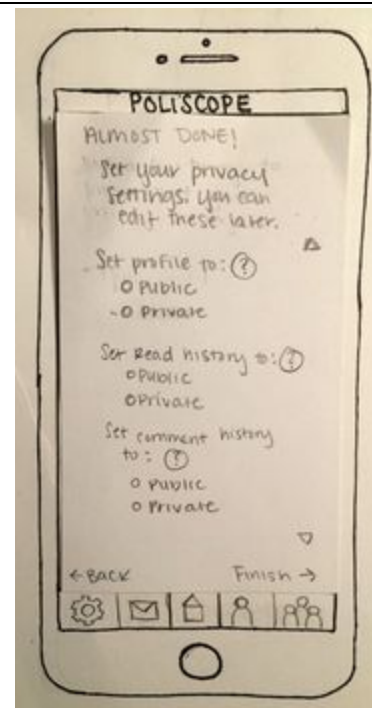 POLISCOPE
ALMOST DONE!
Set your privacy
settings. You can
edit these later.
Set profile to: ?
Public
Private
Set Read history to: ?
Public
Private
Set comment history
to: ?
Public
Private
← BACK Finish →